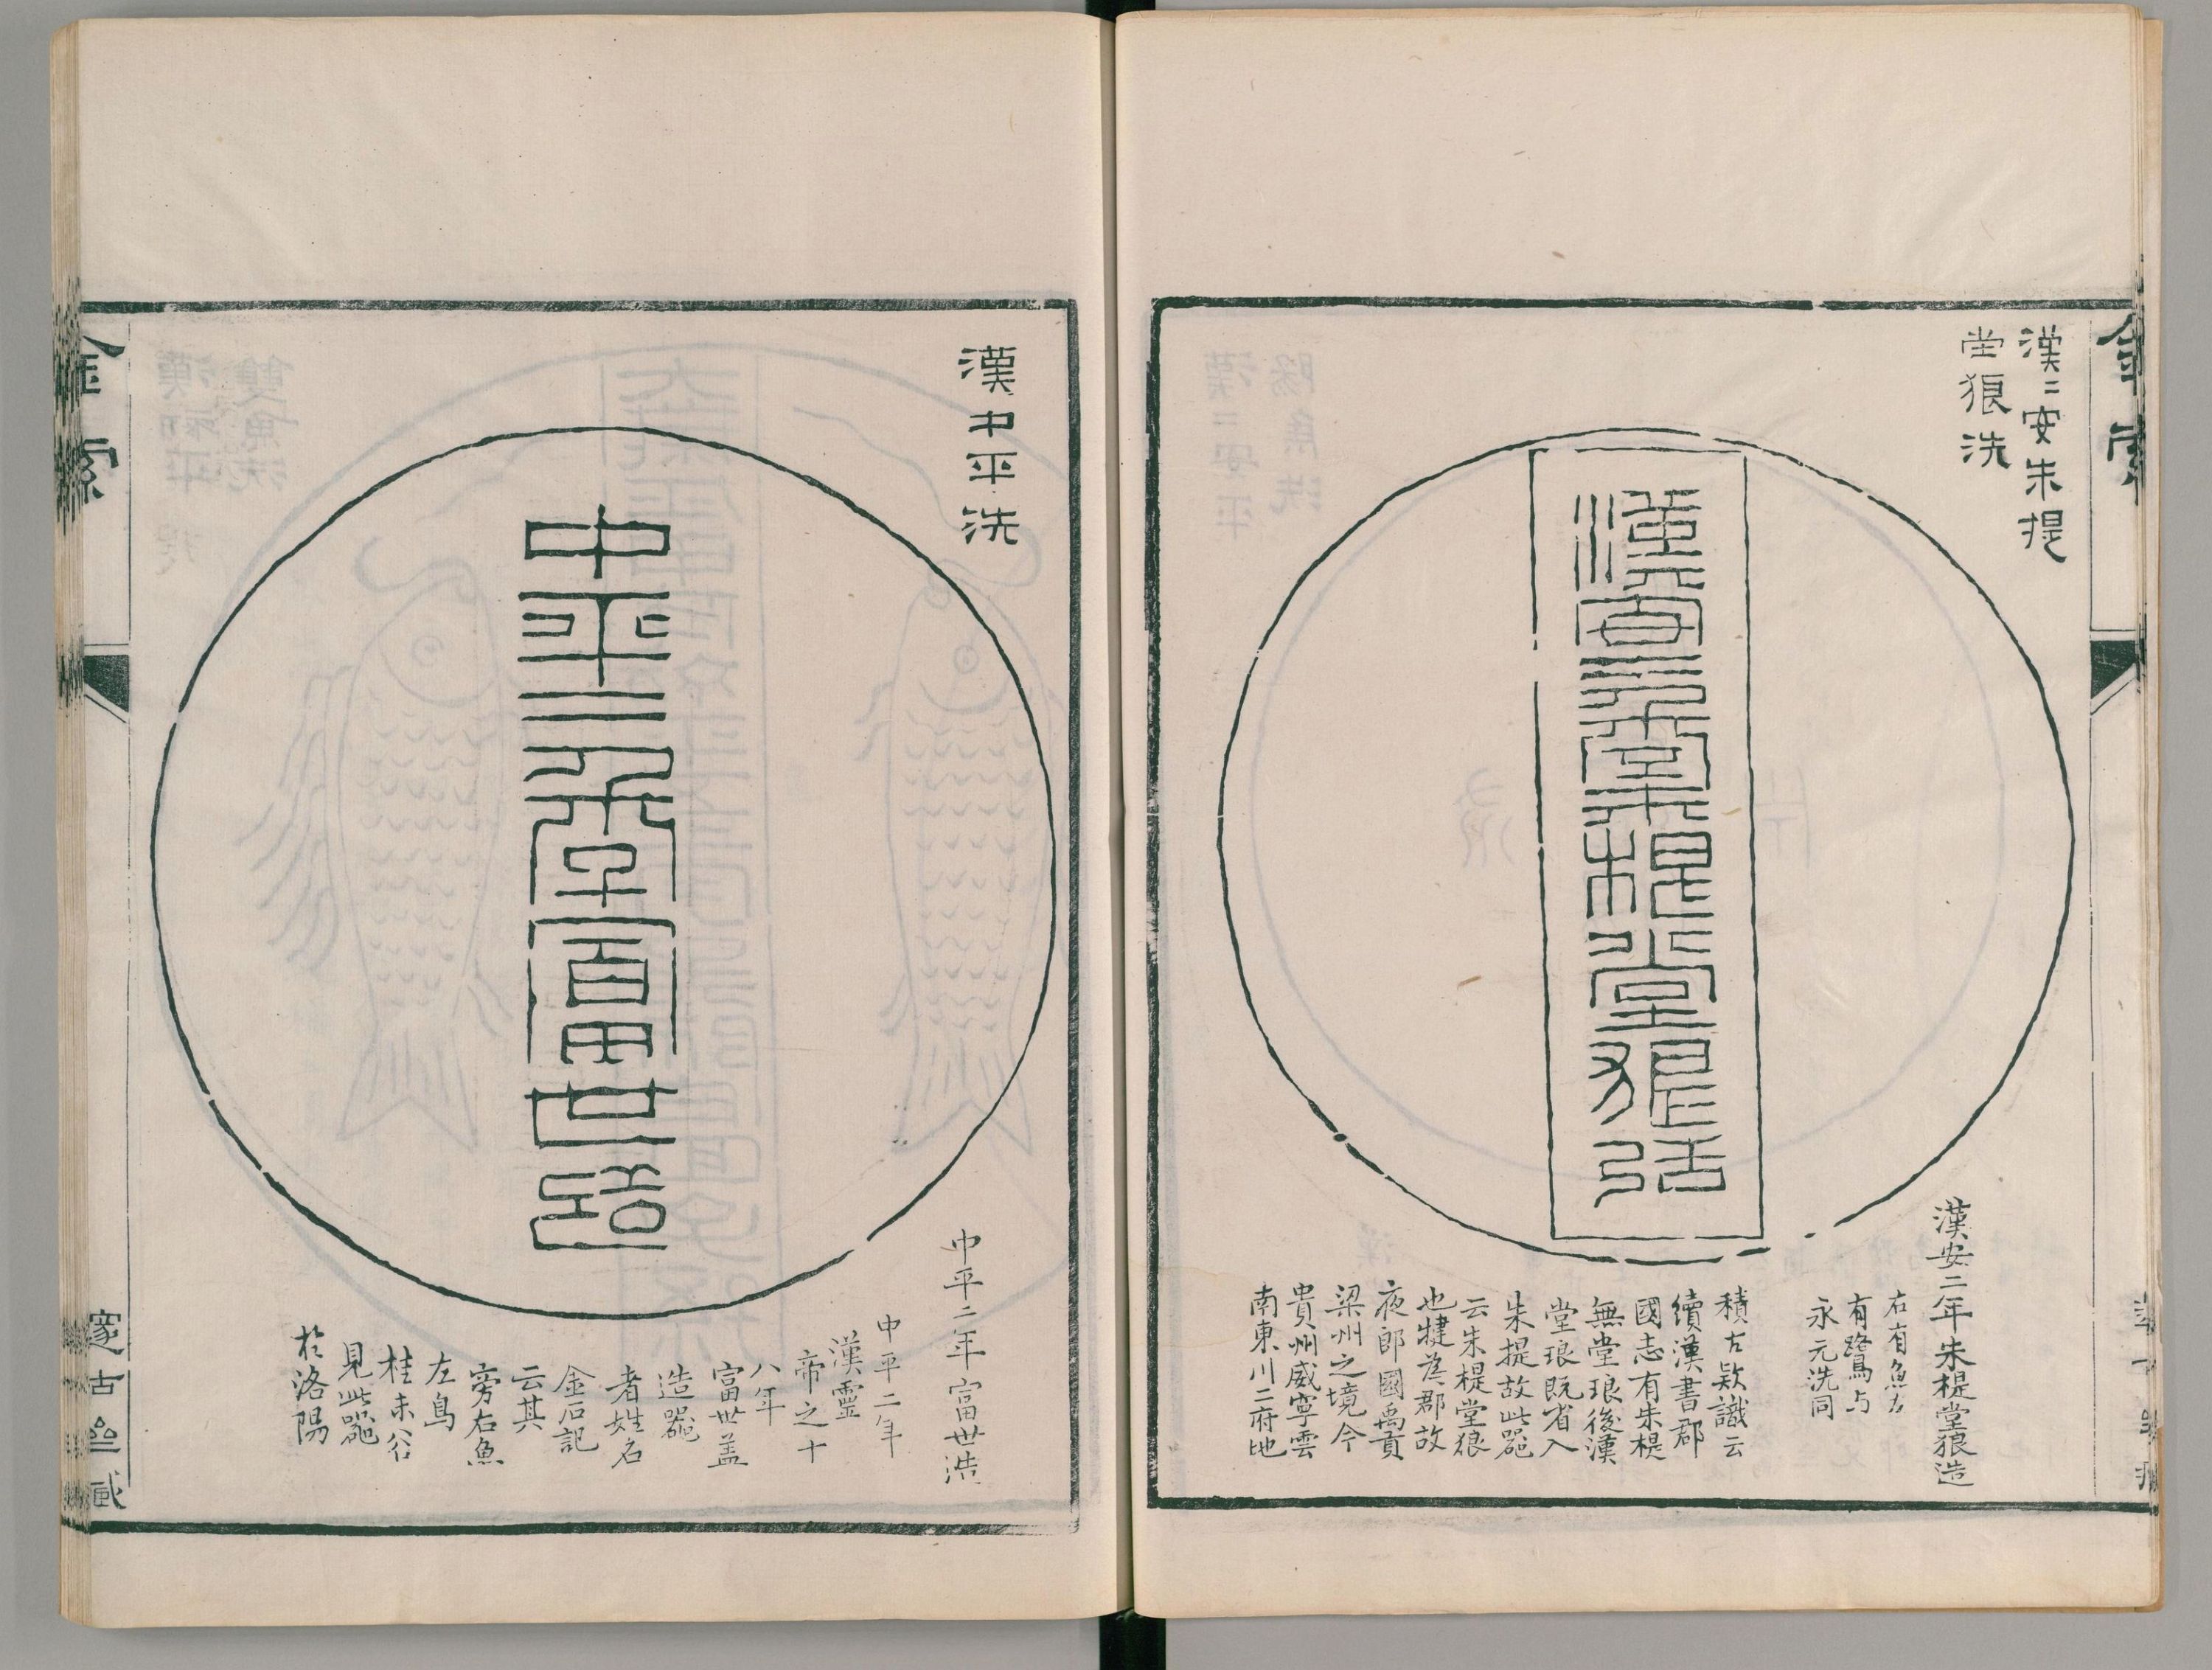 漢二安朱提
堂狼洗
漢安二年朱㮛堂狼造
漢安二年朱㮛堂狼造
右有魚左
有鷺与
永元洗同
積古欵識云
續漢書郡
國志有朱㮛
無堂琅後漢
堂琅既省入
朱提故此器
云朱㮛堂狼
也犍為郡故
夜郎國禹貢
梁州之境今
貴州威寧雲
南東川二府地
漢中平洗
中平二年富世造
中平二年富世造
中平二年
漢靈
帝之十
八年
富世盖
造器
者姓名
金石記
云其
旁右魚
左鳥
桂未谷
見此器
於洛陽
金索
邃古𡉄藏